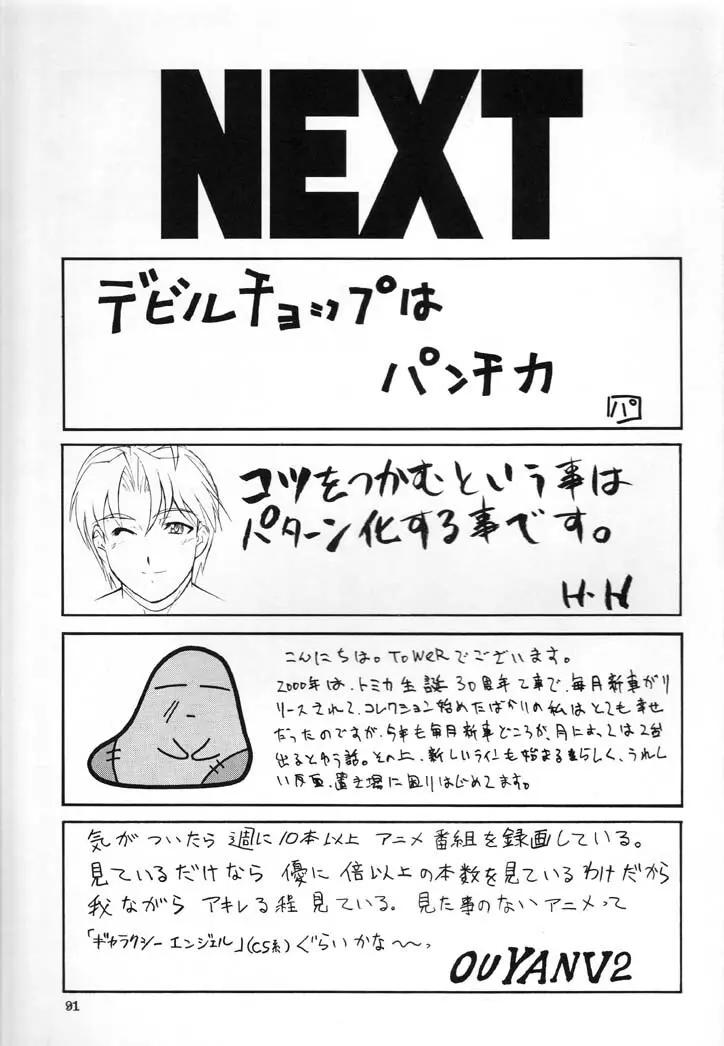 NEXT
デビルチョップは
パンチカ
パ
コツをつかむという事は
パターン化する事です。
H・H
こんにちは。TOWERでございます。
2000年は、トミカ生誕30周年て事で、毎月新車がリ
リースされて、コレクション始めたばかりの私はとても幸せ
だったのですが、今年も毎月新車どころか、月によっては2台
出るとゆう話。その上、新しいラインも始まるらしく、うれし
い反面、置き場に困りはじめてます。
気がついたら 週に10本以上 アニメ番組を録画している。
見ているだけなら 優に 倍以上の本数を見ているわけだから
我ながら アキレる程 見ている。見た事のないアニメって
「ギャラクシーエンジェル」(CS系)ぐらいかな〜〜っ
OUYANV2
91